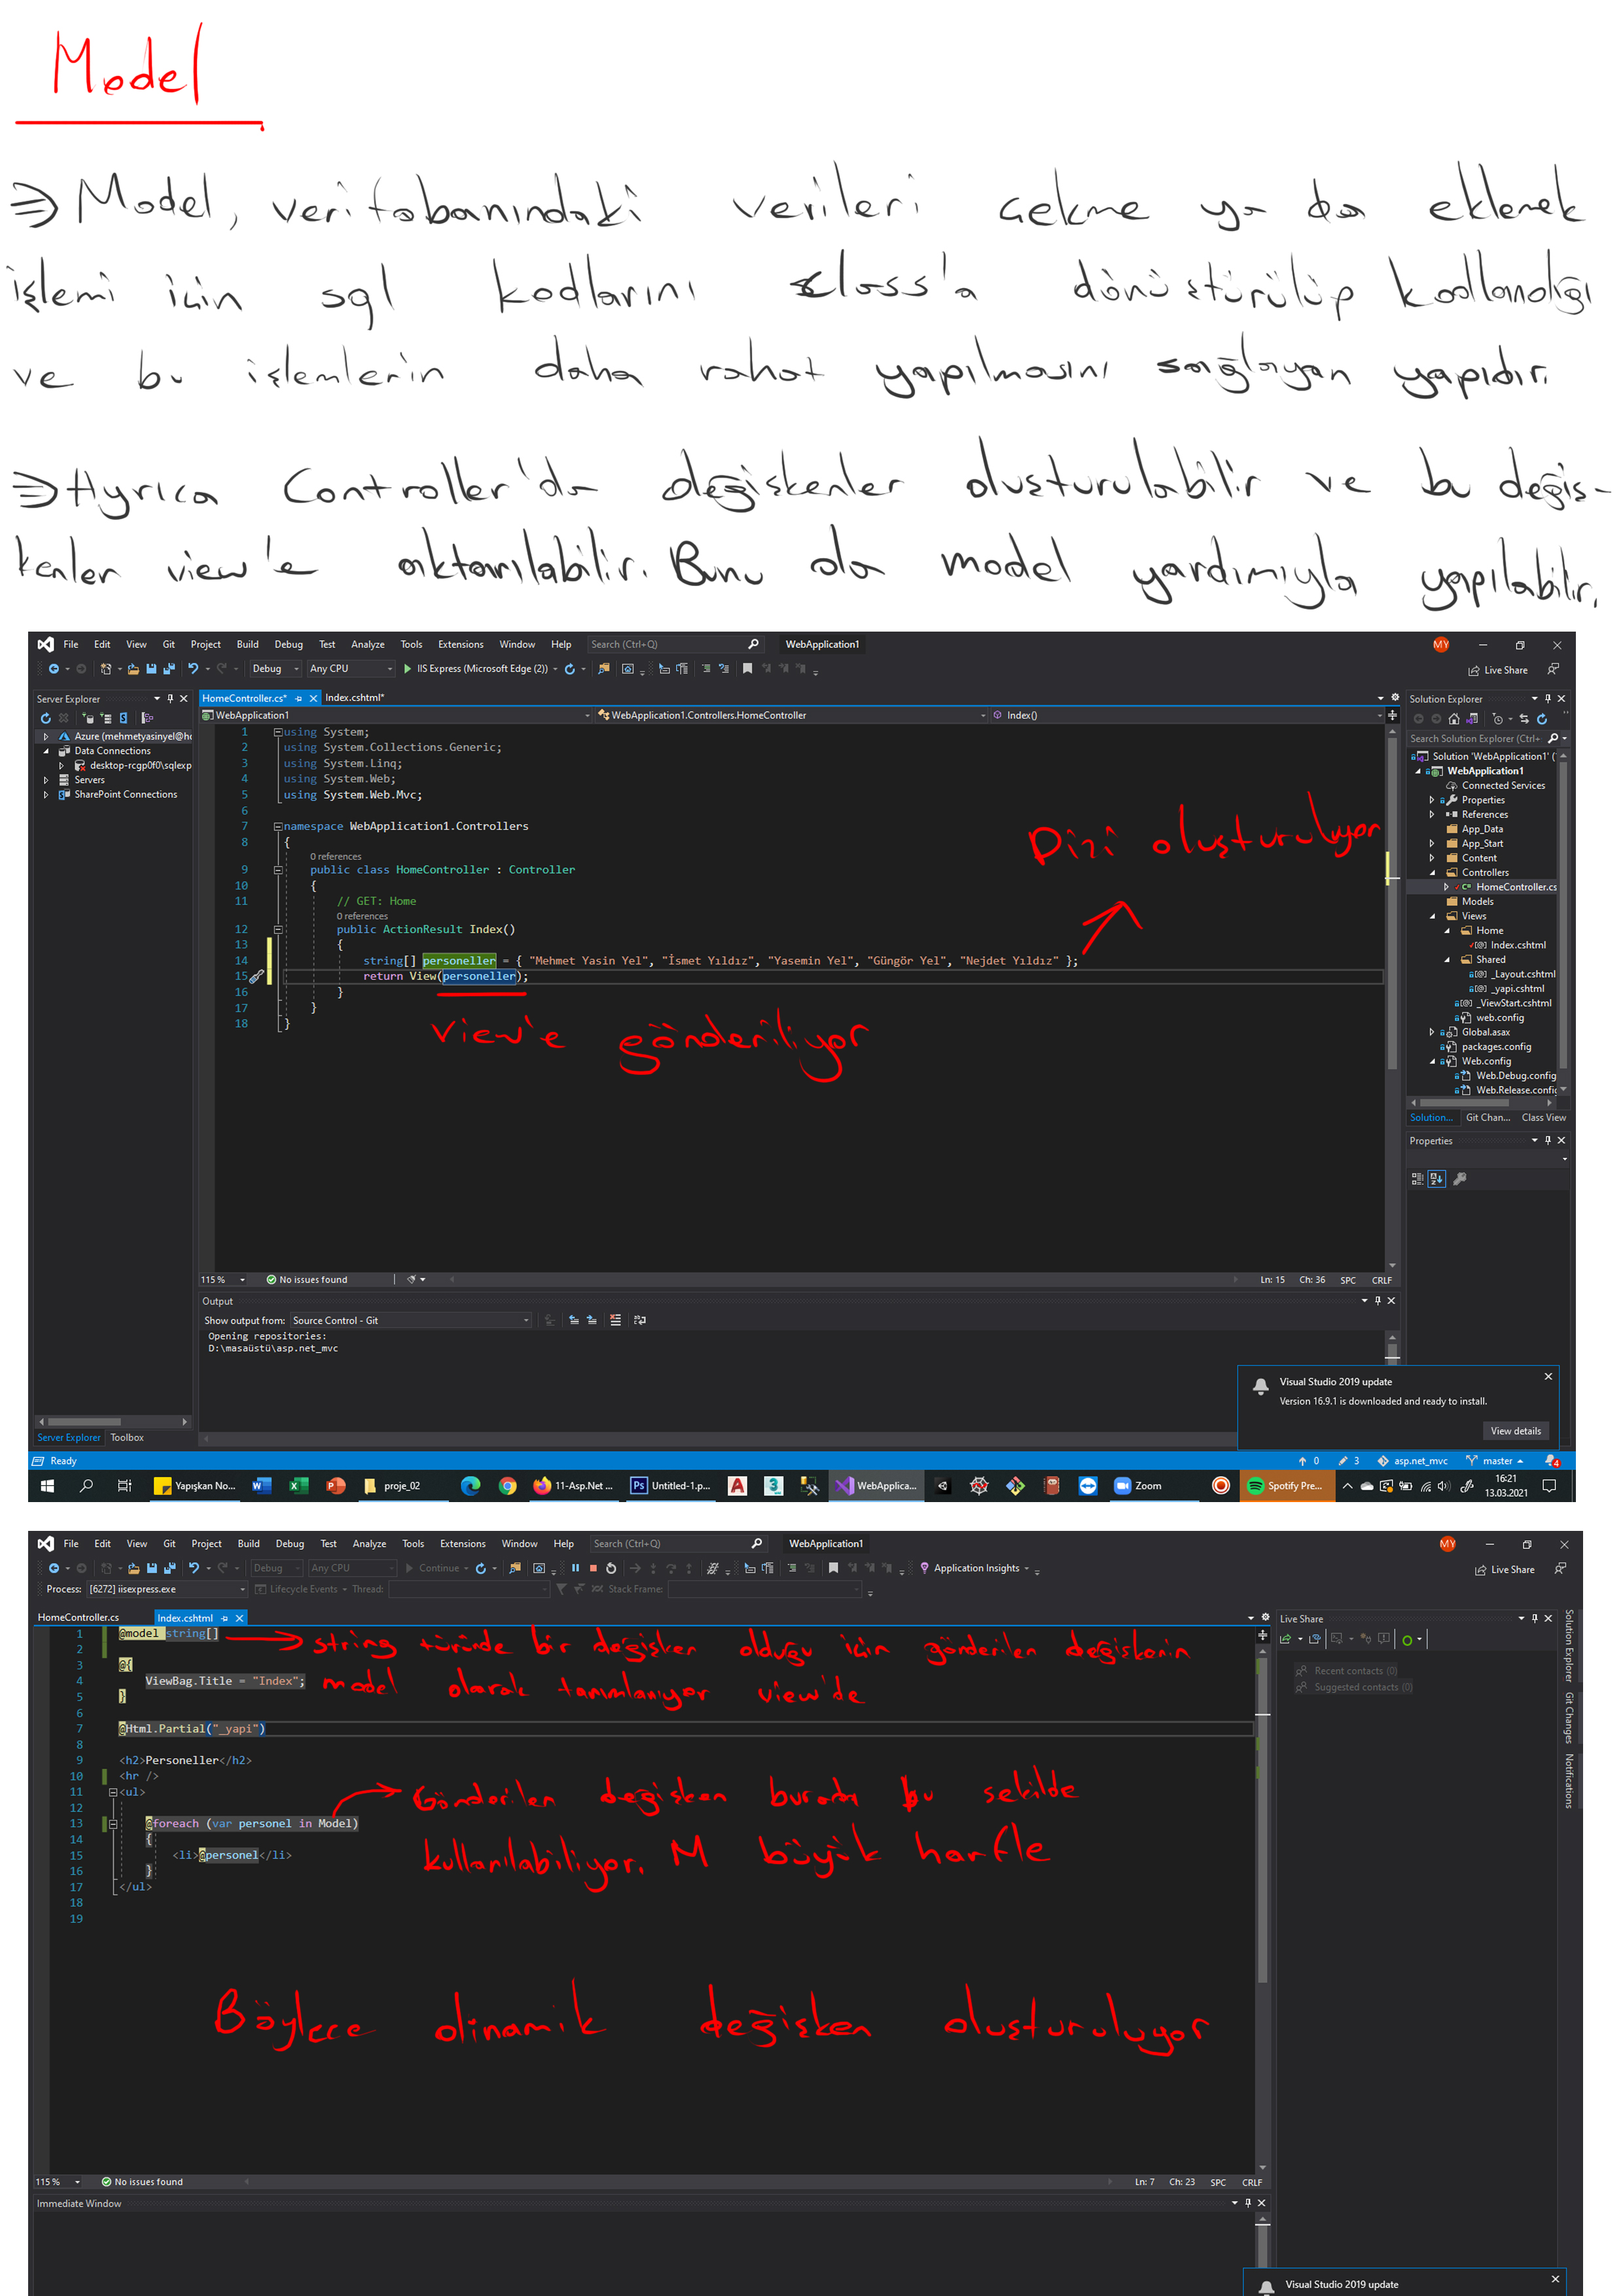 Model
⇒ Model, veritabanındaki verileri çekme ya da eklemek
işlemi için sql kodlarını class'a dönüştürülüp kodlandığı
ve bu işlemlerin daha rahat yapılmasını sağlayan yapıdır.
⇒ Ayrıca Controller'da değişkenler oluşturulabilir ve bu değiş-
kenler view'e aktarılabilir. Bunu da model yardımıyla yapılabilir.
File Edit View Git Project Build Debug Test Analyze Tools Extensions Window Help Search (Ctrl+Q) WebApplication1 MY
Debug Any CPU IIS Express (Microsoft Edge (2)) Live Share
Server Explorer
Azure (mehmetyasinyel@ho
Data Connections
desktop-rcgp0f0\sqlexp
Servers
SharePoint Connections
Server Explorer Toolbox
HomeController.cs* Index.cshtml*
WebApplication1 WebApplication1.Controllers.HomeController Index()
1 using System;
2 using System.Collections.Generic;
3 using System.Linq;
4 using System.Web;
5 using System.Web.Mvc;
6
7 namespace WebApplication1.Controllers
8 {
0 references
9 public class HomeController : Controller
10 {
11 // GET: Home
0 references
12 public ActionResult Index()
13 {
14 string[] personeller = { "Mehmet Yasin Yel", "İsmet Yıldız", "Yasemin Yel", "Güngör Yel", "Nejdet Yıldız" };
15 return View(personeller);
16 }
17 }
18 }
Dizi oluşturuluyor
view'e gönderiliyor
115 % No issues found Ln: 15 Ch: 36 SPC CRLF
Output
Show output from: Source Control - Git
Opening repositories:
D:\masaüstü\asp.net_mvc
Solution Explorer
Search Solution Explorer (Ctrl+
Solution 'WebApplication1' (
WebApplication1
Connected Services
Properties
References
App_Data
App_Start
Content
Controllers
HomeController.cs
Models
Views
Home
Index.cshtml
Shared
_Layout.cshtml
_yapi.cshtml
_ViewStart.cshtml
web.config
Global.asax
packages.config
Web.config
Web.Debug.config
Web.Release.config
Solution... Git Chan... Class View
Properties
Visual Studio 2019 update
Version 16.9.1 is downloaded and ready to install.
View details
Ready 0 3 asp.net_mvc master 4
Yapışkan No... proje_02 11-Asp.Net ... Untitled-1.p... WebApplica... Zoom Spotify Pre... 16:21
13.03.2021
File Edit View Git Project Build Debug Test Analyze Tools Extensions Window Help Search (Ctrl+Q) WebApplication1 MY
Debug Any CPU Continue Application Insights Live Share
Process: [6272] iisexpress.exe Lifecycle Events Thread: Stack Frame:
HomeController.cs Index.cshtml
1 @model string[]
2
3 @{
4 ViewBag.Title = "Index";
5 }
6
7 @Html.Partial("_yapi")
8
9 <h2>Personeller</h2>
10 <hr />
11 <ul>
12
13 @foreach (var personel in Model)
14 {
15 <li>@personel</li>
16 }
17 </ul>
18
19
string türünde bir değişken olduğu için gönderilen değişkenin
model olarak tanımlanıyor view'de
Gönderilen değişken burada bu şekilde
kullanılabiliyor. M büyük harfle
Böylece dinamik değişken oluşturuluyor
Live Share
Recent contacts (0)
Suggested contacts (0)
Solution Explorer
Git Changes
Notifications
115 % No issues found Ln: 7 Ch: 23 SPC CRLF
Immediate Window
Visual Studio 2019 update